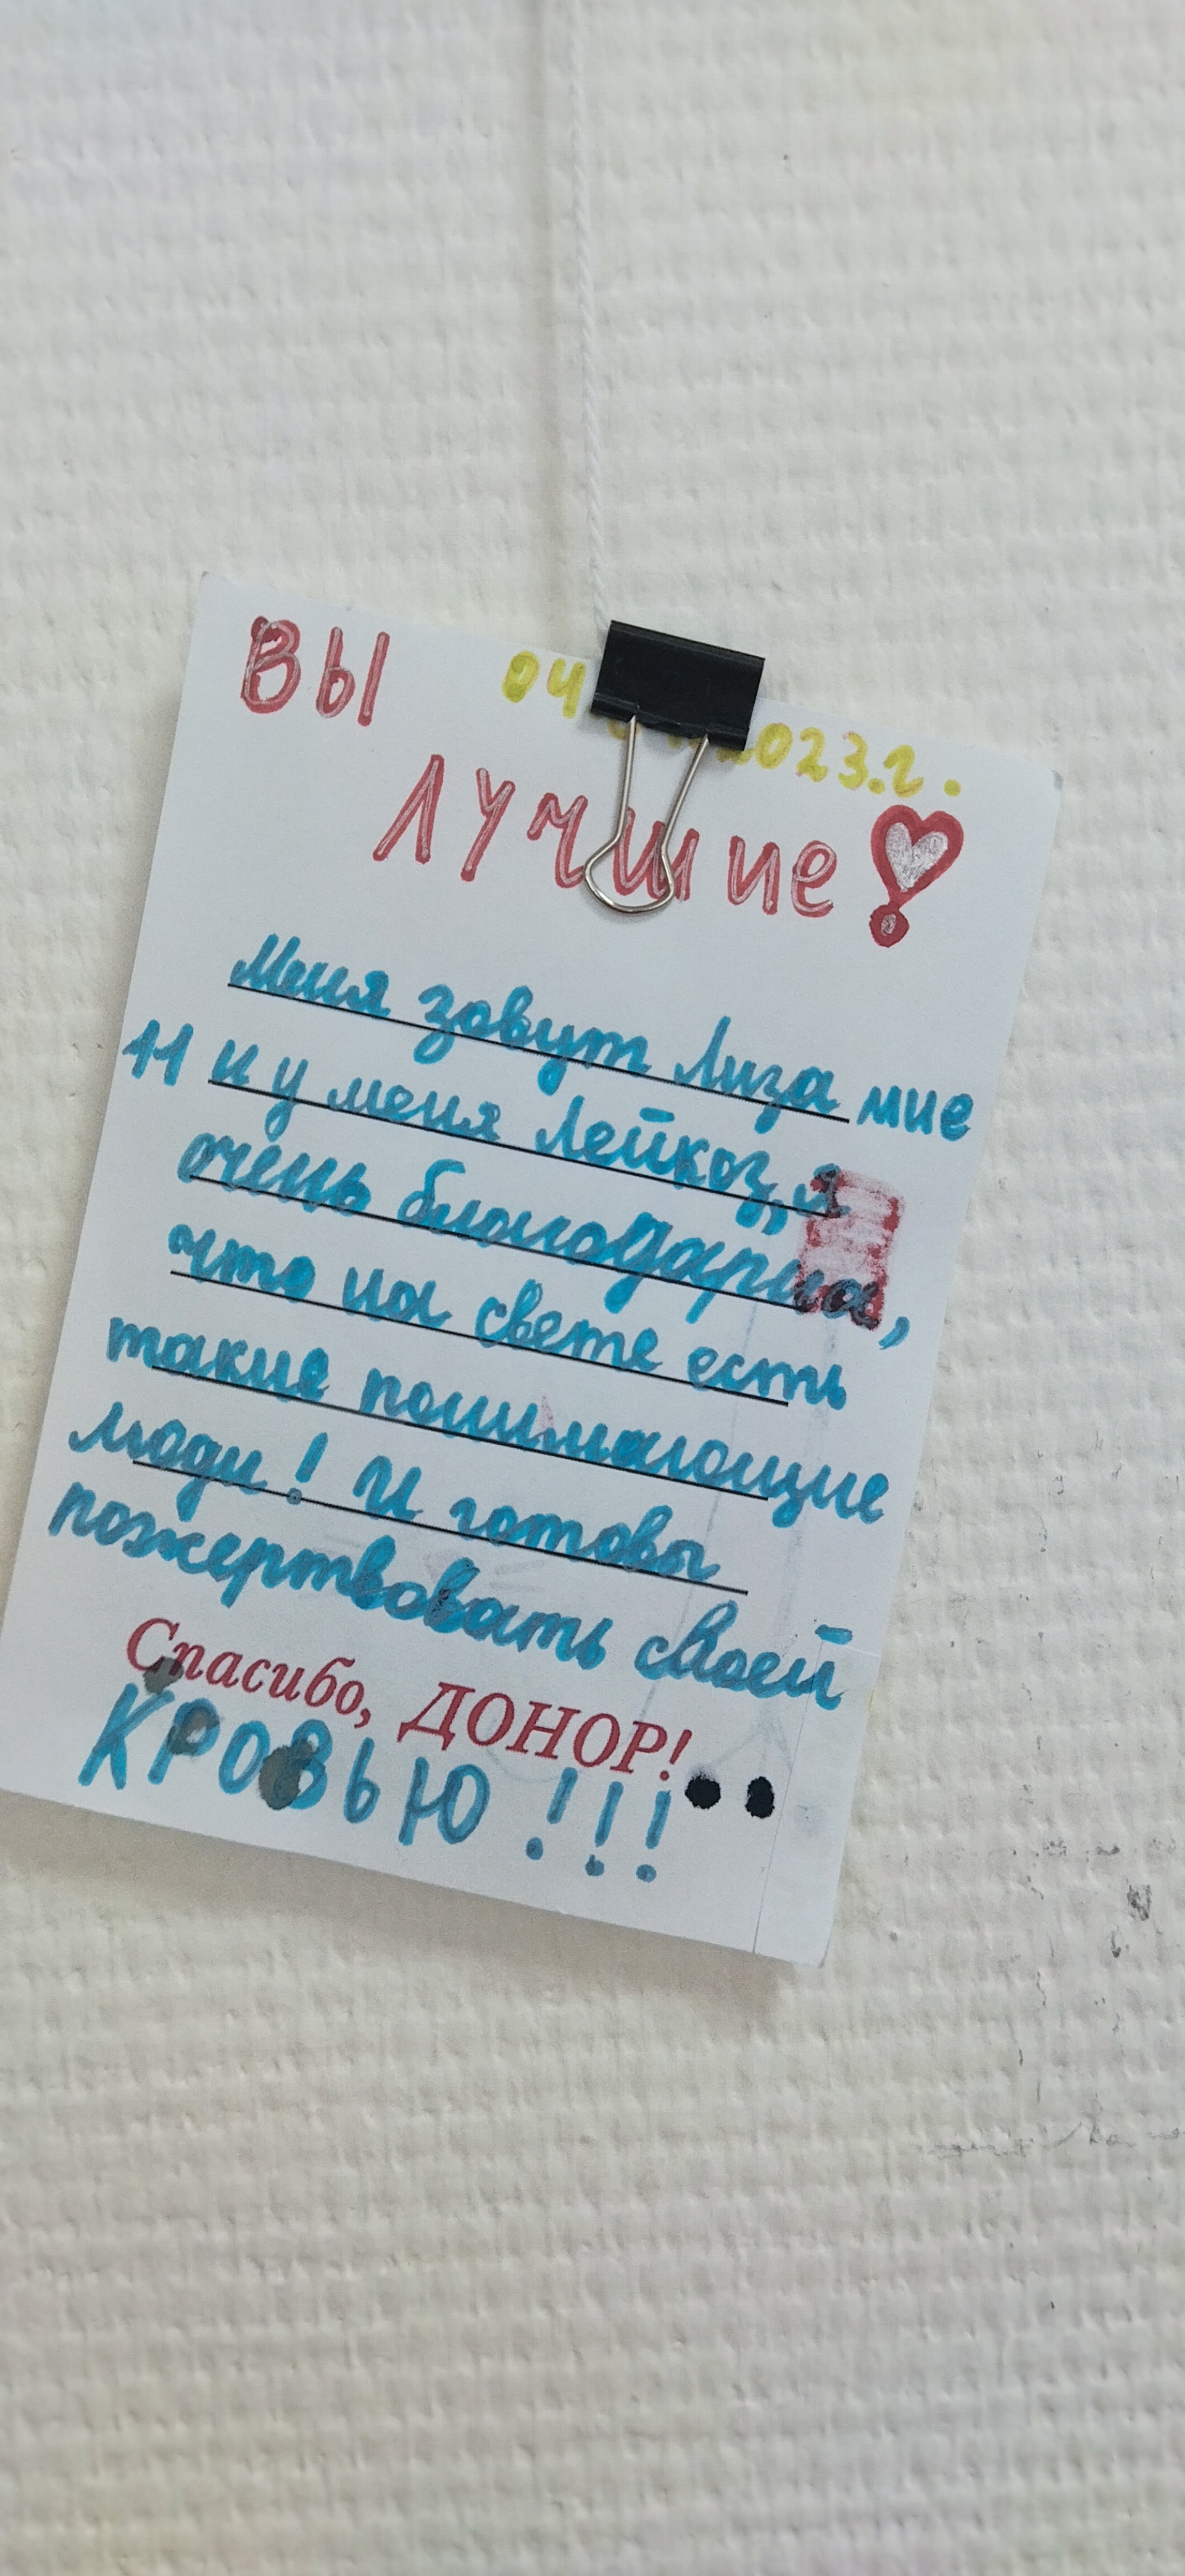 ВЫ 04 2023.г.
ЛУЧшие!
Меня зовут Лиза мне
11 и у меня Лейкоз, я
очень благодарна,
что на свете есть
такие понимающие
люди! И готовы
пожертвовать своей
Спасибо, ДОНОР!
КРОВЬЮ!!!